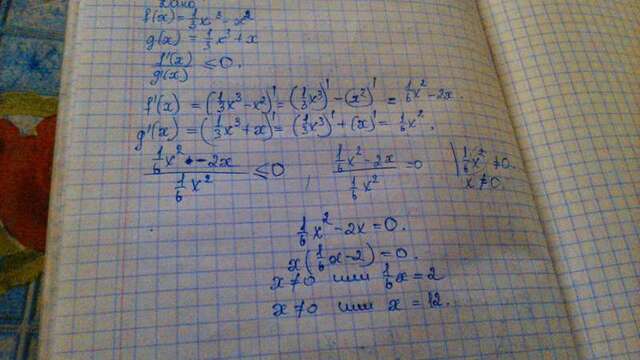 Дано
f(x) = 1/3 x³ - x²
g(x) = 1/3 x³ + x
f'(x)/g'(x) ≤ 0.
f'(x) = (1/3 x³ - x²)' = (1/3 x³)' - (x²)' = 1/6 x² - 2x.
g'(x) = (1/3 x³ + x)' = (1/3 x³)' + (x)' = 1/6 x².
(1/6 x² - 2x)/(1/6 x²) ≤ 0 ; (1/6 x² - 2x)/(1/6 x²) = 0 1/6 x² ≠ 0.
x ≠ 0.
1/6 x² - 2x = 0.
x(1/6 x - 2) = 0.
x ≠ 0 или 1/6 x = 2
x ≠ 0 или x = 12.